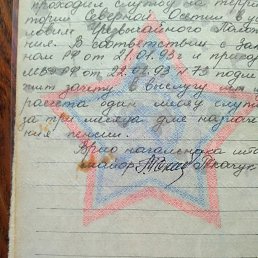 проходил службу на терри
тории Северной Осетии в ус
ловиях Чрезвычайного Полож
ния. В соответствии с Зак
ном РФ от 21.01.93г и приказ
МВ РФ от 22.01.93 N 73 подле
жит зачету в выслугу лет из
расчета один месяц служб
за три месяца для назначе
ния пенсии.
Врио начальника шта
майор Ткачук